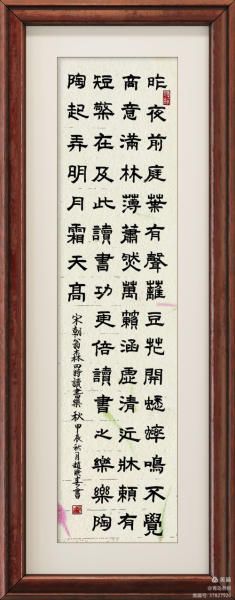 昨夜前庭葉有聲籬豆花開蟋蟀鳴不覺
商意滿林薄蕭然萬籟涵虛清近牀賴有
短檠在及此讀書功更倍讀書之樂樂陶
陶起弄明月霜天高
宋朝翁森四時讀書樂 秋 甲辰秋月趙書
美篇
美篇号 37827920